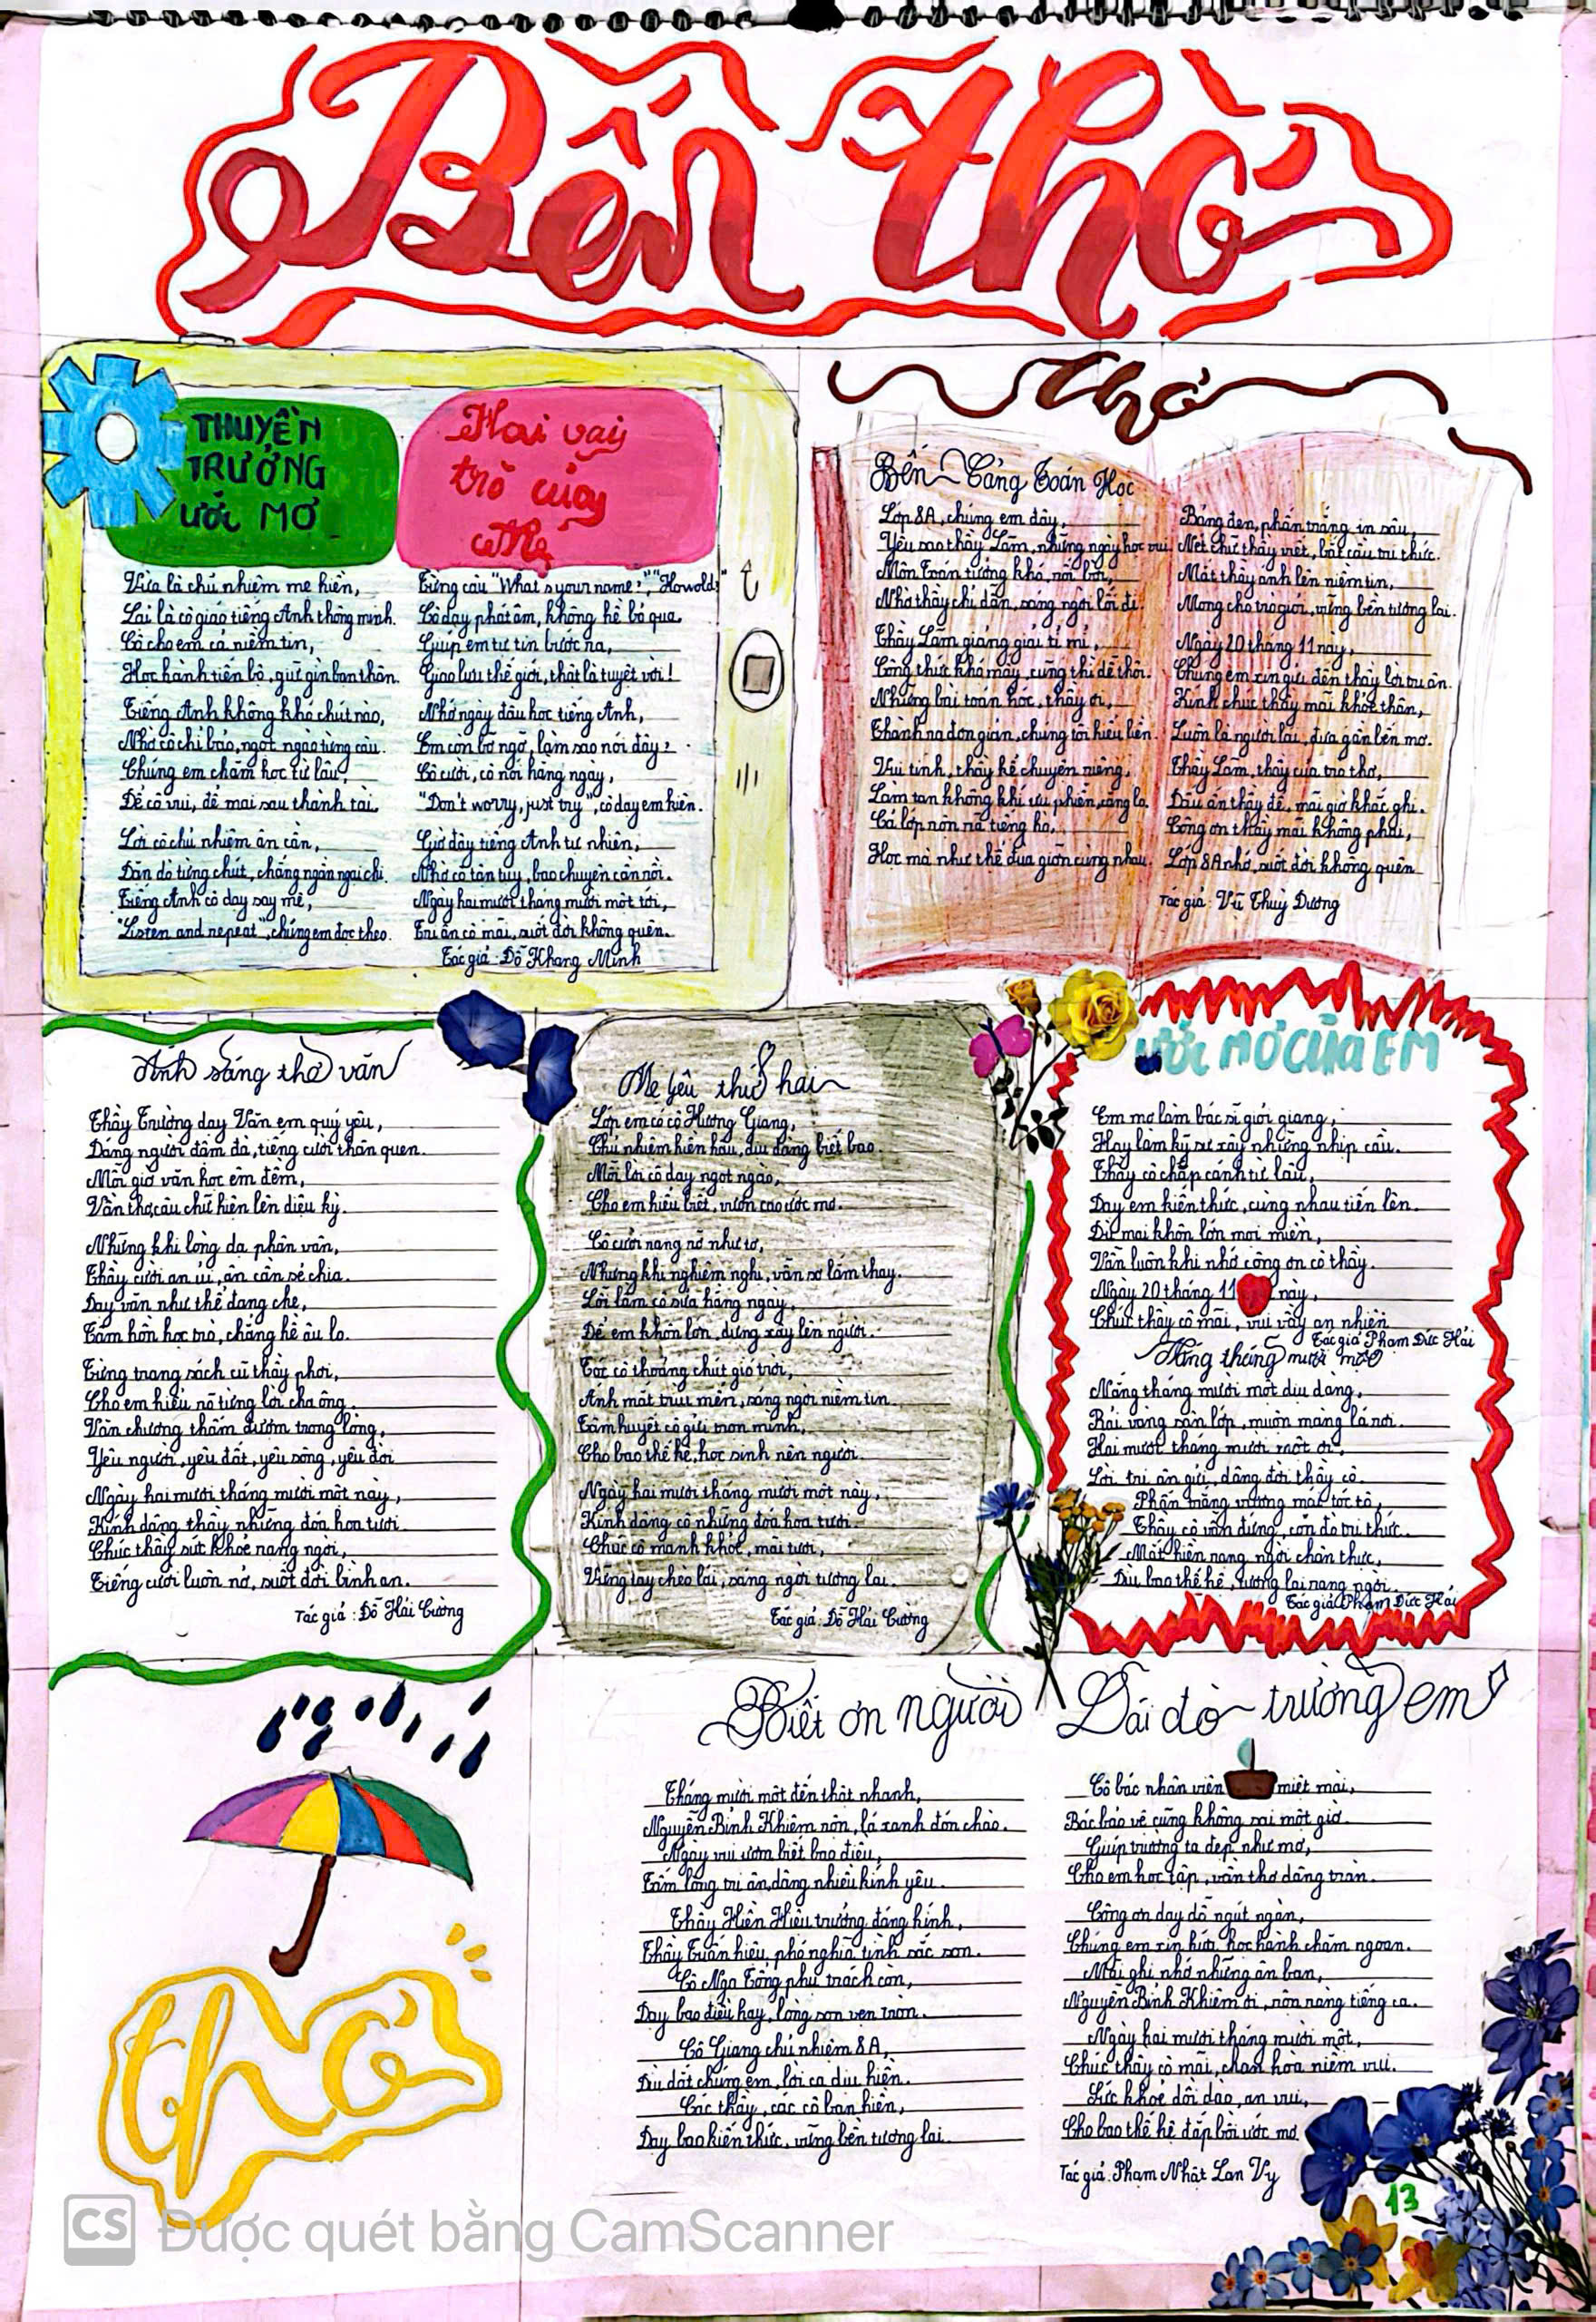 Bến thơ
THUYỀN
TRƯỞNG
ước MƠ
Vừa là chủ nhiệm mẹ hiền,
Lại là cô giáo tiếng Anh thông minh.
Cô cho em cả niềm tin,
Học hành tiến bộ, giữ gìn bản thân.
Tiếng Anh không khó chút nào,
Nhờ cô chỉ bảo, ngọt ngào từng câu.
Chúng em chăm học từ lâu,
Để cô vui, để mai sau thành tài.
Lời cô chủ nhiệm ân cần,
Dặn dò từng chút, chẳng ngần ngại chi.
Tiếng Anh cô dạy say mê,
"Listen and repeat", chúng em đọc theo.
Hai vai
trò của
mẹ
Từng câu "What's your name?", "How old?"
Cô dạy phát âm, không hề bỏ qua.
Giúp em tự tin bước ra,
Giao lưu thế giới, thật là tuyệt vời!
Nhớ ngày đầu học tiếng Anh,
Em còn bỡ ngỡ, làm sao nói đây?
Cô cười, cô nói hằng ngày,
"Don't worry, just try", cô dạy em kiên.
Giờ đây tiếng Anh tự nhiên,
Nhờ cô tận tụy, bao chuyện cần nói.
Ngày hai mươi tháng mười một tới,
Tri ân cô mãi, suốt đời không quên.
Tác giả: Đỗ Khang Minh
Thơ
Bến Cảng Toán Học
Lớp 8A, chúng em đây,
Yêu sao thầy Lâm, những ngày học vui.
Môn Toán tưởng khó, rối bời,
Nhờ thầy chỉ dẫn, sáng ngời lối đi.
Thầy Lâm giảng giải tỉ mỉ,
Công thức khó mấy, cũng thì dễ thôi.
Những bài toán hóc, thầy ơi,
Thành ra đơn giản, chúng tôi hiểu liền.
Vui tính, thầy kể chuyện riêng,
Làm tan không khí ưu phiền, căng lo.
Cả lớp rộn rã tiếng hò,
Học mà như thể đùa giỡn cùng nhau.
Bảng đen, phấn trắng in sâu,
Nét chữ thầy viết, bắt cầu tri thức.
Mắt thầy ánh lên niềm tin,
Mong cho trò giỏi, vững bền tương lai.
Ngày 20 tháng 11 này,
Chúng em xin gửi đến thầy lời tri ân.
Kính chúc thầy mãi khỏe thân,
Luôn là người lái, đưa gần bến mơ.
Thầy Lâm, thầy của trò thơ,
Dấu ấn thầy để, mãi giờ khắc ghi.
Công ơn thầy mãi không phai,
Lớp 8A nhớ, suốt đời không quên
Tác giả: Vũ Thuỳ Dương
Ánh sáng thơ văn
Thầy Trường dạy Văn em quý yêu,
Dáng người đậm đà, tiếng cười thân quen.
Mỗi giờ văn học êm đềm,
Vần thơ, câu chữ hiện lên diệu kỳ.
Những khi lòng dạ phân vân,
Thầy cười an ủi, ân cần sẻ chia.
Dạy văn như thể đang che,
Tâm hồn học trò, chẳng hề âu lo.
Từng trang sách cũ thầy phơi,
Cho em hiểu rõ từng lời cha ông.
Văn chương thấm đượm trong lòng,
Yêu người, yêu đất, yêu sông, yêu đời
Ngày hai mươi tháng mười một này,
Kính dâng thầy những đóa hoa tươi
Chúc thầy sức khỏe rạng ngời,
Tiếng cười luôn nở, suốt đời bình an.
Tác giả: Đỗ Hải Cường
Mẹ yêu thứ hai
Lớp em có cô Hương Giang,
Chủ nhiệm hiền hậu, dịu dàng biết bao.
Mỗi lời cô dạy ngọt ngào,
Cho em hiểu biết, vươn cao ước mơ.
Cô cười rạng rỡ như tơ,
Nhưng khi nghiêm nghị, vẫn sợ lắm thay.
Lỗi lầm cô sửa hằng ngày,
Để em khôn lớn, dựng xây lên người.
Tóc cô thoảng chút gió trời,
Ánh mắt trìu mến, sáng ngời niềm tin.
Tâm huyết cô gửi trọn mình,
Cho bao thế hệ, học sinh nên người.
Ngày hai mươi tháng mười một này,
Kính dâng cô những đóa hoa tươi.
Chúc cô mạnh khỏe, mãi tươi,
Vững tay chèo lái, sáng ngời tương lai.
Tác giả: Đỗ Hải Cường
ước MƠ CỦA EM
Em mơ làm bác sĩ giỏi giang,
Hay làm kỹ sư xây những nhịp cầu.
Thầy cô chắp cánh từ lâu,
Dạy em kiến thức, cùng nhau tiến lên.
Dù mai khôn lớn mọi miền,
Vẫn luôn khi nhớ công ơn cô thầy.
Ngày 20 tháng 11 này,
Chúc thầy cô mãi, vui vầy an nhiên
Tác giả Phạm Đức Hải
Nắng tháng mười một
Nắng tháng mười một dịu dàng,
Rải vàng sân lớp, muôn màng lá rơi.
Hai mươi tháng mười một ơi,
Lời tri ân gửi, dâng đời thầy cô.
Phấn trắng vương mái tóc tô,
Thầy cô vẫn đứng, còn đò tri thức.
Mắt hiền rạng ngời chân thực,
Dìu bao thế hệ, tương lai rạng ngời.
Tác giả Phạm Đức Hải
Thơ
Biết ơn người Lái đò trường em
Tháng mười một đến thật nhanh,
Nguyễn Bỉnh Khiêm rộn, lá xanh đón chào.
Ngày vui ươm biết bao điều,
Tấm lòng tri ân, dâng nhiều kính yêu.
Thầy Hiền Hiệu trưởng đáng kính,
Thầy Tuấn hiệu phó nghĩa tình sắc son.
Cô Nga Tổng phụ trách còn,
Dạy bao điều hay, lòng son vẹn tròn.
Cô Giang chủ nhiệm 8A,
Dìu dắt chúng em, lời ca dịu hiền.
Các thầy, các cô bạn hiền,
Dạy bao kiến thức, vững bền tương lai.
Cô bác nhân viên miệt mài,
Bác bảo vệ cũng không sai một giờ.
Giúp trường ta đẹp như mơ,
Cho em học tập, vần thơ dâng tràn.
Công ơn dạy dỗ ngút ngàn,
Chúng em xin hứa học hành chăm ngoan.
Mãi ghi nhớ những ân ban,
Nguyễn Bỉnh Khiêm ơi, rộn ràng tiếng ca.
Ngày hai mươi tháng mười một,
Chúc thầy cô mãi, chan hòa niềm vui.
Sức khoẻ dồi dào, an vui,
Cho bao thế hệ đắp bồi ước mơ.
Tác giả: Phạm Nhật Lan Vy
13
CS Được quét bằng CamScanner